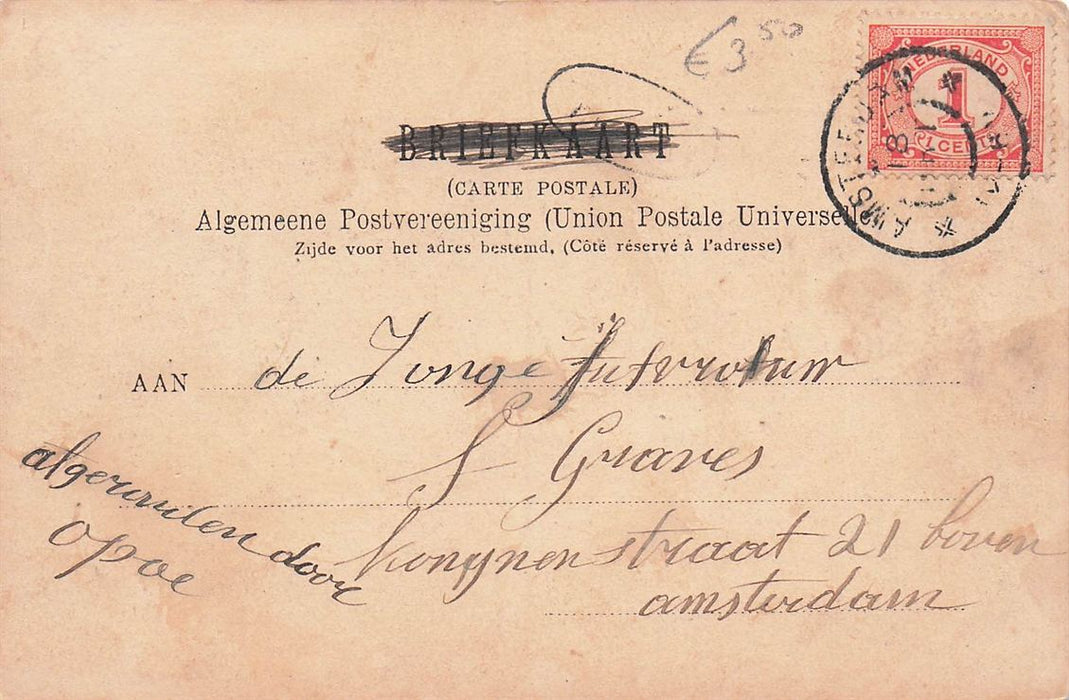 € 3 50
NEDERLAND
1
CENT
AMSTERDAM
BRIEFKAART
(CARTE POSTALE)
Algemeene Postvereeniging (Union Postale Universelle)
Zijde voor het adres bestemd, (Côté réservé à l'adresse)
AAN de Jonge Jufvrouw
S Graves
Konynenstraat 21 boven
amsterdam
door
opoe